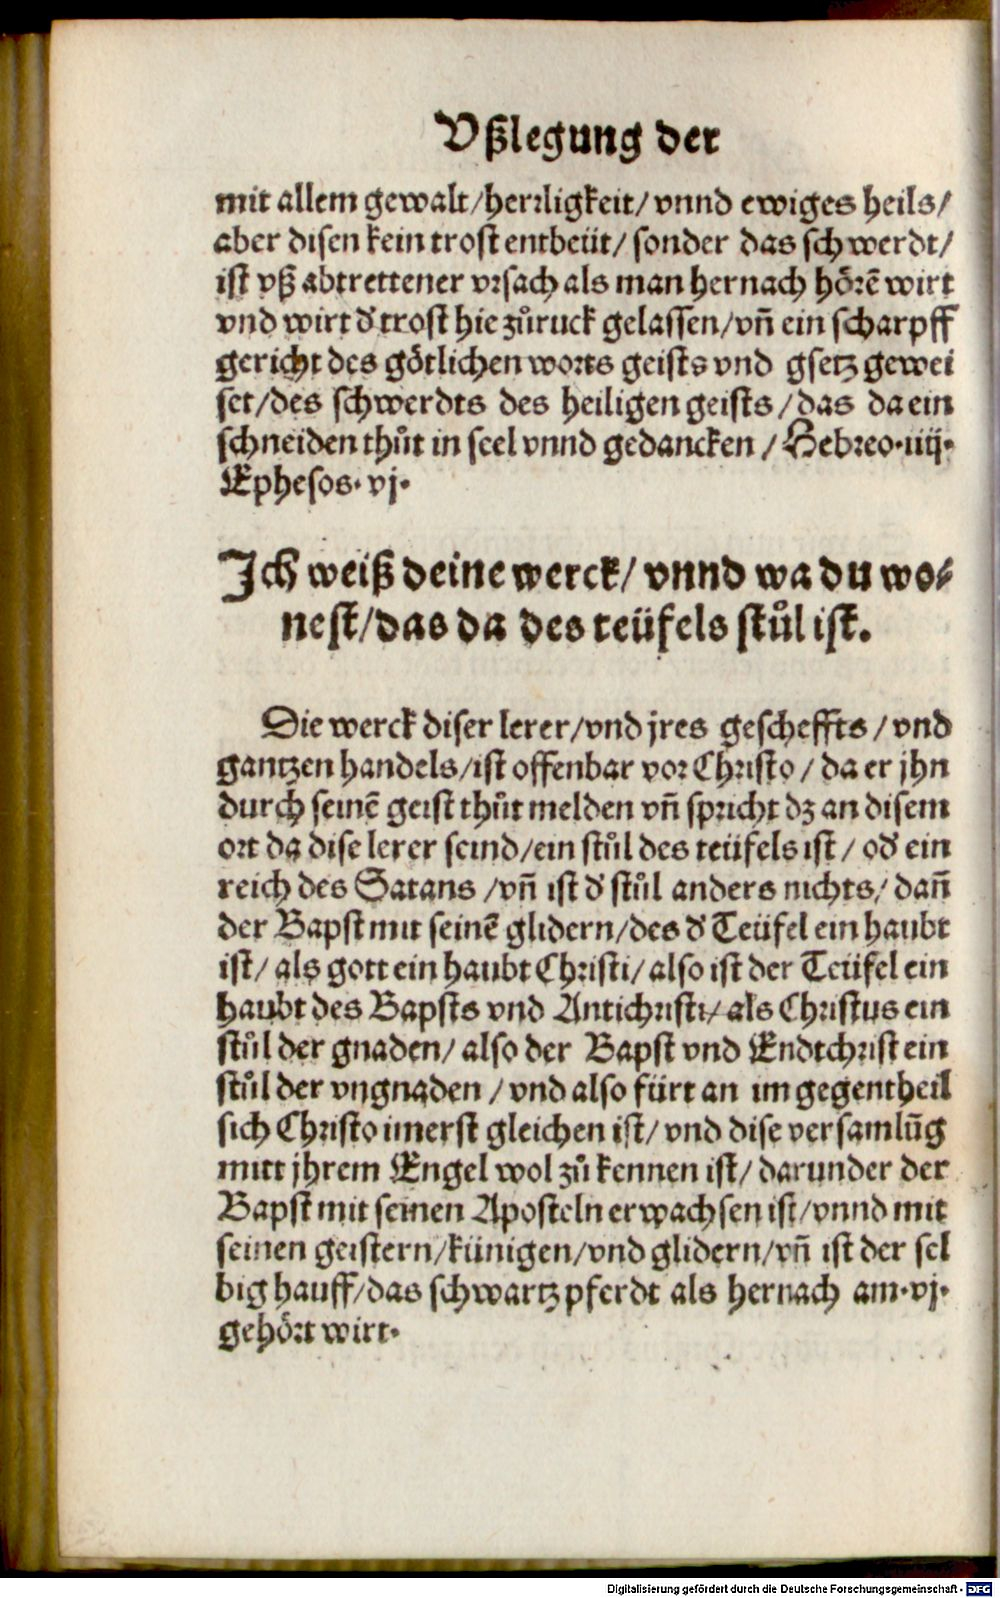 Vßlegung der
mit allem gewalt/herꝛligkeit/ vnnd ewiges heils/
aber disen kein trost entbeüt/ sonder das schwerdt/
ist vß abtrettener vꝛsach als man hernach hoͤꝛē wirt
vnd wirt d' trost hie zuͦruck gelassen/vñ ein scharpff
gericht des goͤtlichen woꝛts geists vnd gsetz gewei
set/des schwerdts des heiligen geists/das da ein
schneiden thuͦt in seel vnnd gedancken/Hebꝛeo·iiij·
Ephesos· vj·
Ich weiß deine werck/ vnnd wa du wo⸗
nest/das da des teüfels stuͦl ist.
Die werck diser lerer/vnd jres gescheffts/vnd
gantzen handels/ist offenbar voꝛ Chꝛisto/ da er jhn
durch seinē geist thuͦt melden vñ spꝛicht dz an disem
oꝛt da dise lerer seind/ein stuͦl des teüfels ist/ od' ein
reich des Satans/vñ ist d' stuͦl anders nichts/ dañ
der Bapst mit seinē glidern/des d' Teüfel ein haubt
ist/ als gott ein haubt Chꝛisti/also ist der Teüfel ein
haubt des Bapsts vnd Antichꝛisti/als Chꝛistus ein
stuͦl der gnaden/ also der Bapst vnd Endtchꝛist ein
stuͦl der vngnaden/vnd also fürt an im gegentheil
sich Chꝛisto imerst gleichen ist/ vnd dise versamlũg
mitt jhrem Engel wol zuͦ kennen ist/ darunder der
Bapst mit seinen Aposteln erwachsen ist/vnnd mit
seinen geistern/künigen/vnd glidern/vñ ist der sel
big hauff/das schwartz pferdt als hernach am·vj·
gehoͤꝛt wirt·
Digitalisierung gefördert durch die Deutsche Forschungsgemeinschaft - DFG